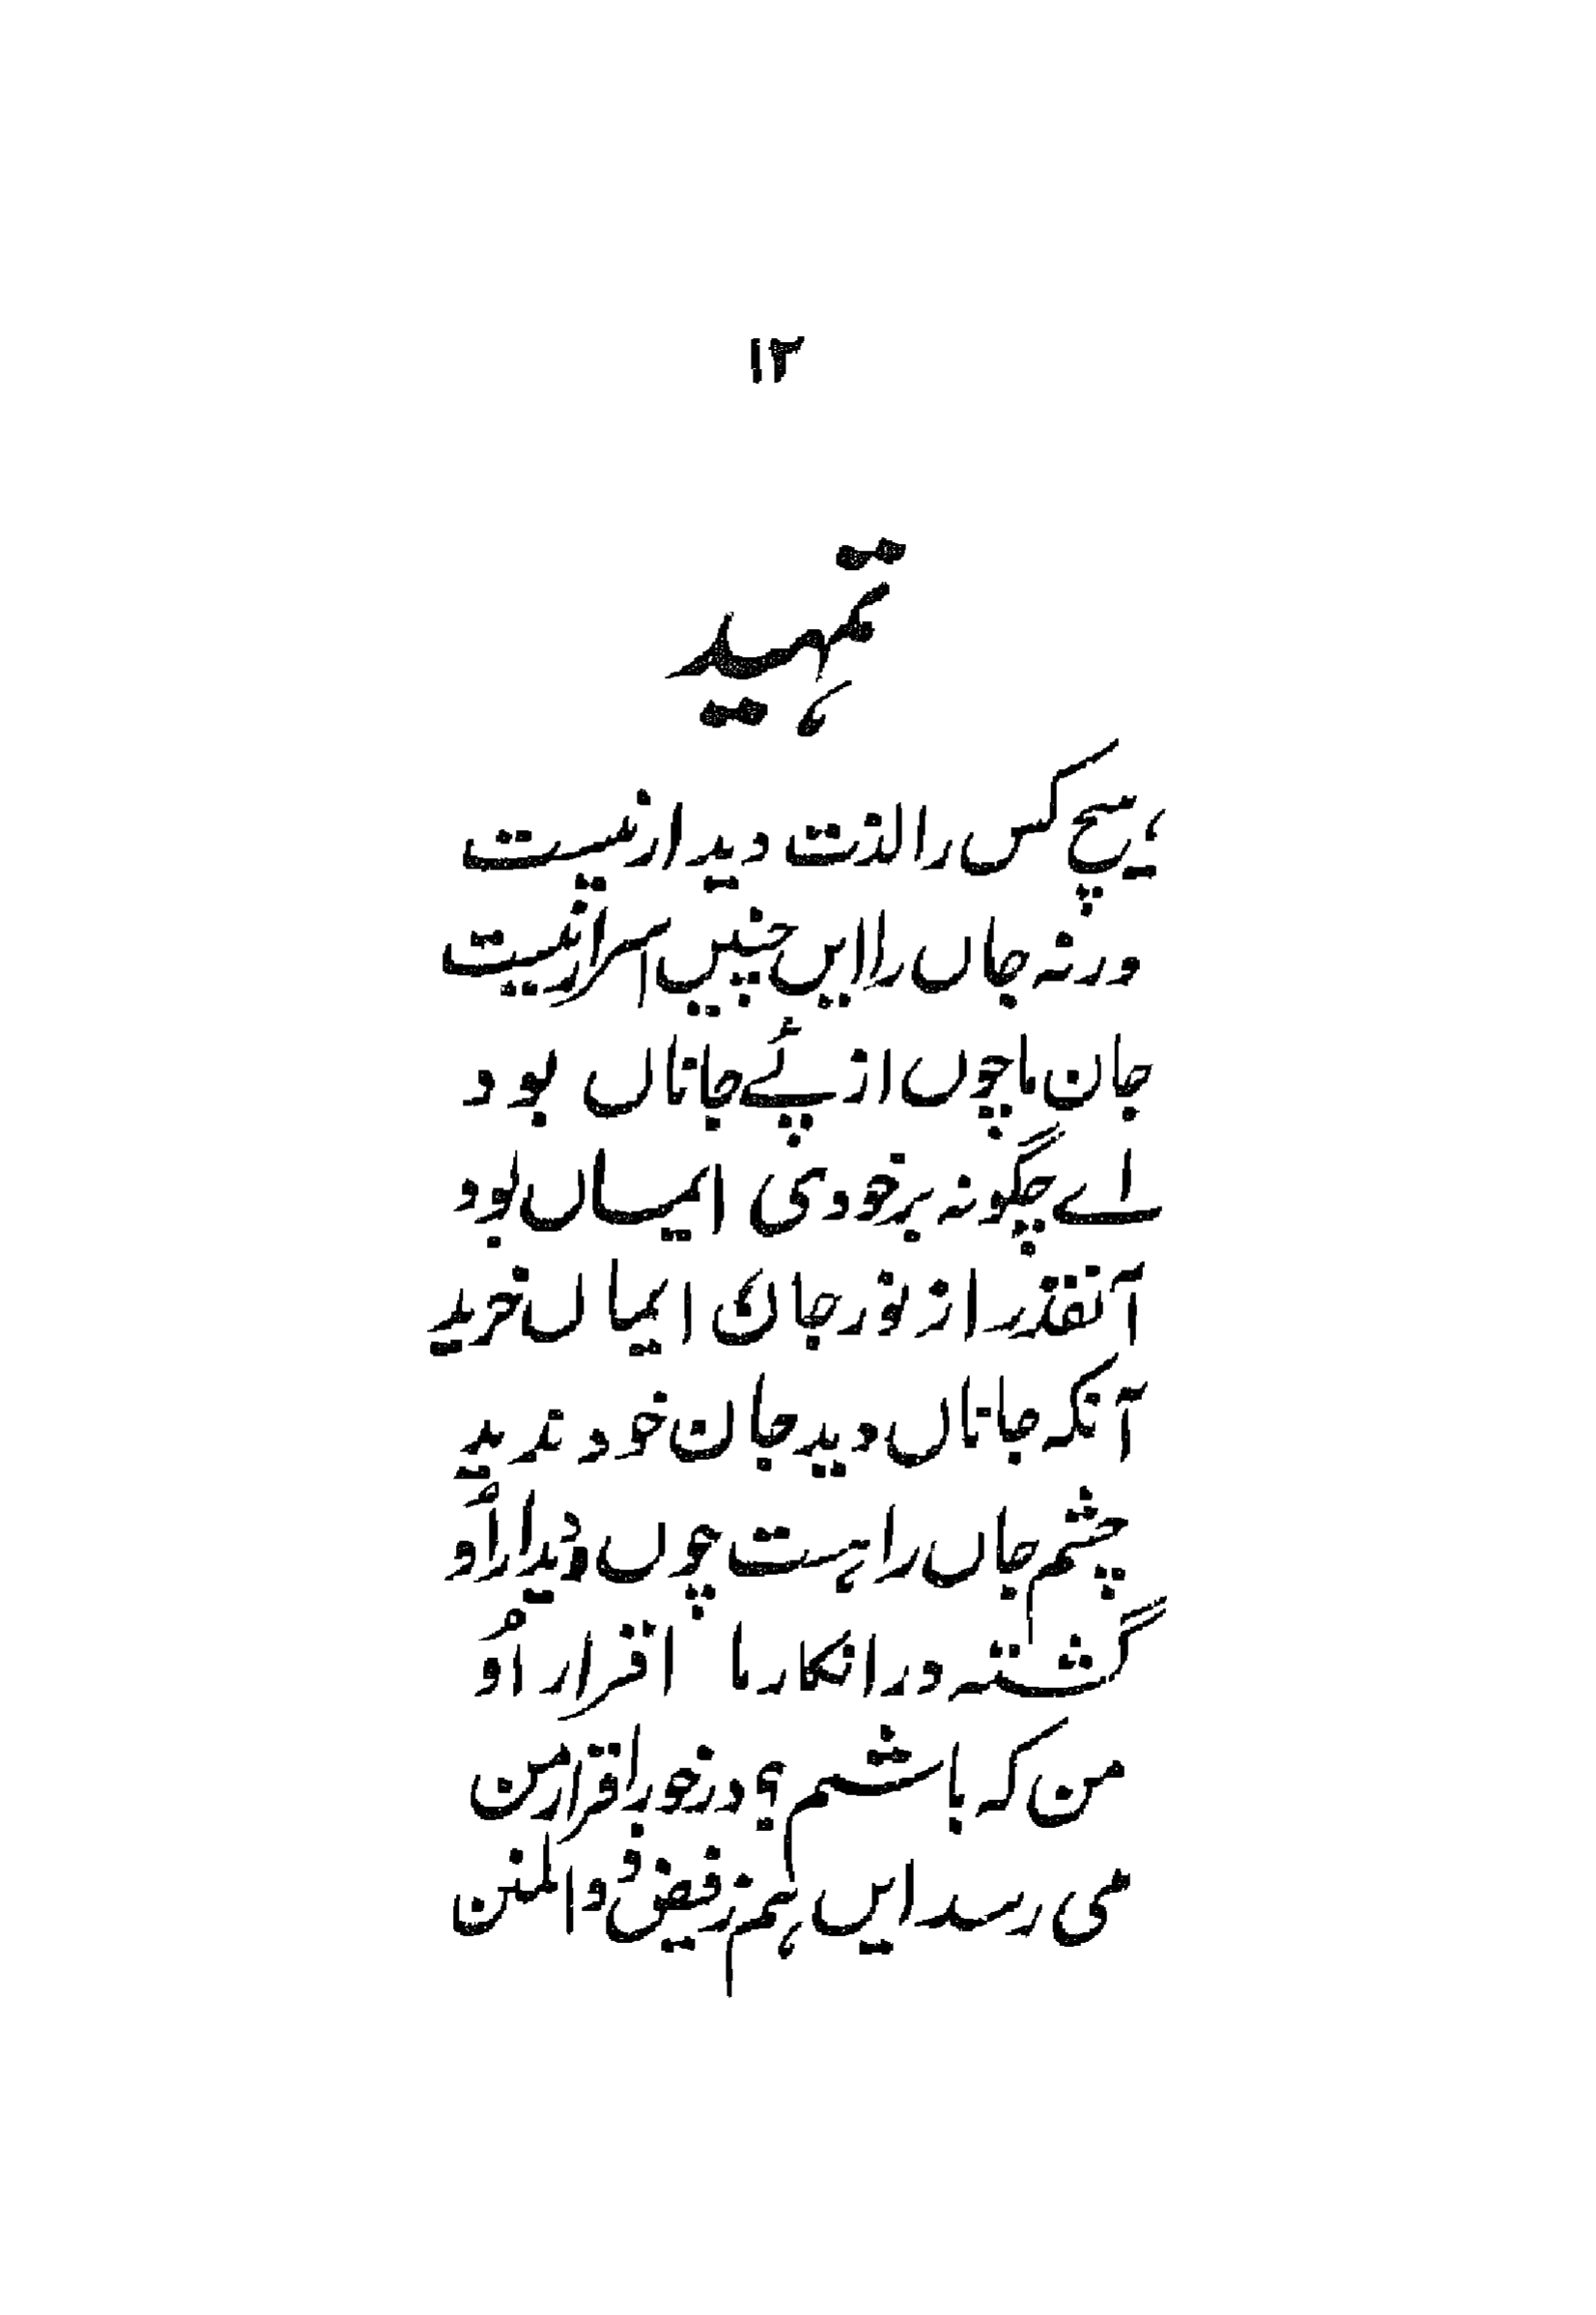 ۱۲
تمہید
ہیچ کس را لذت دیدار نیست
ورنہ جاں را ایں چنیں اسرار نیست
جان ما چوں از پئے جاناں بود
اے چگونہ بر خودی ایماں بود
آنقدر از نور جان ایماں خرید
آنکہ جاناں دید جان خود ندید
چشم جاں را ہست چوں دیدار اُو
گشتہ در انکار ما اقرار اُو
من کہ باشم ؟ در خور اقرار من
می رسد ایں ہم ز فیض ذوالمنن